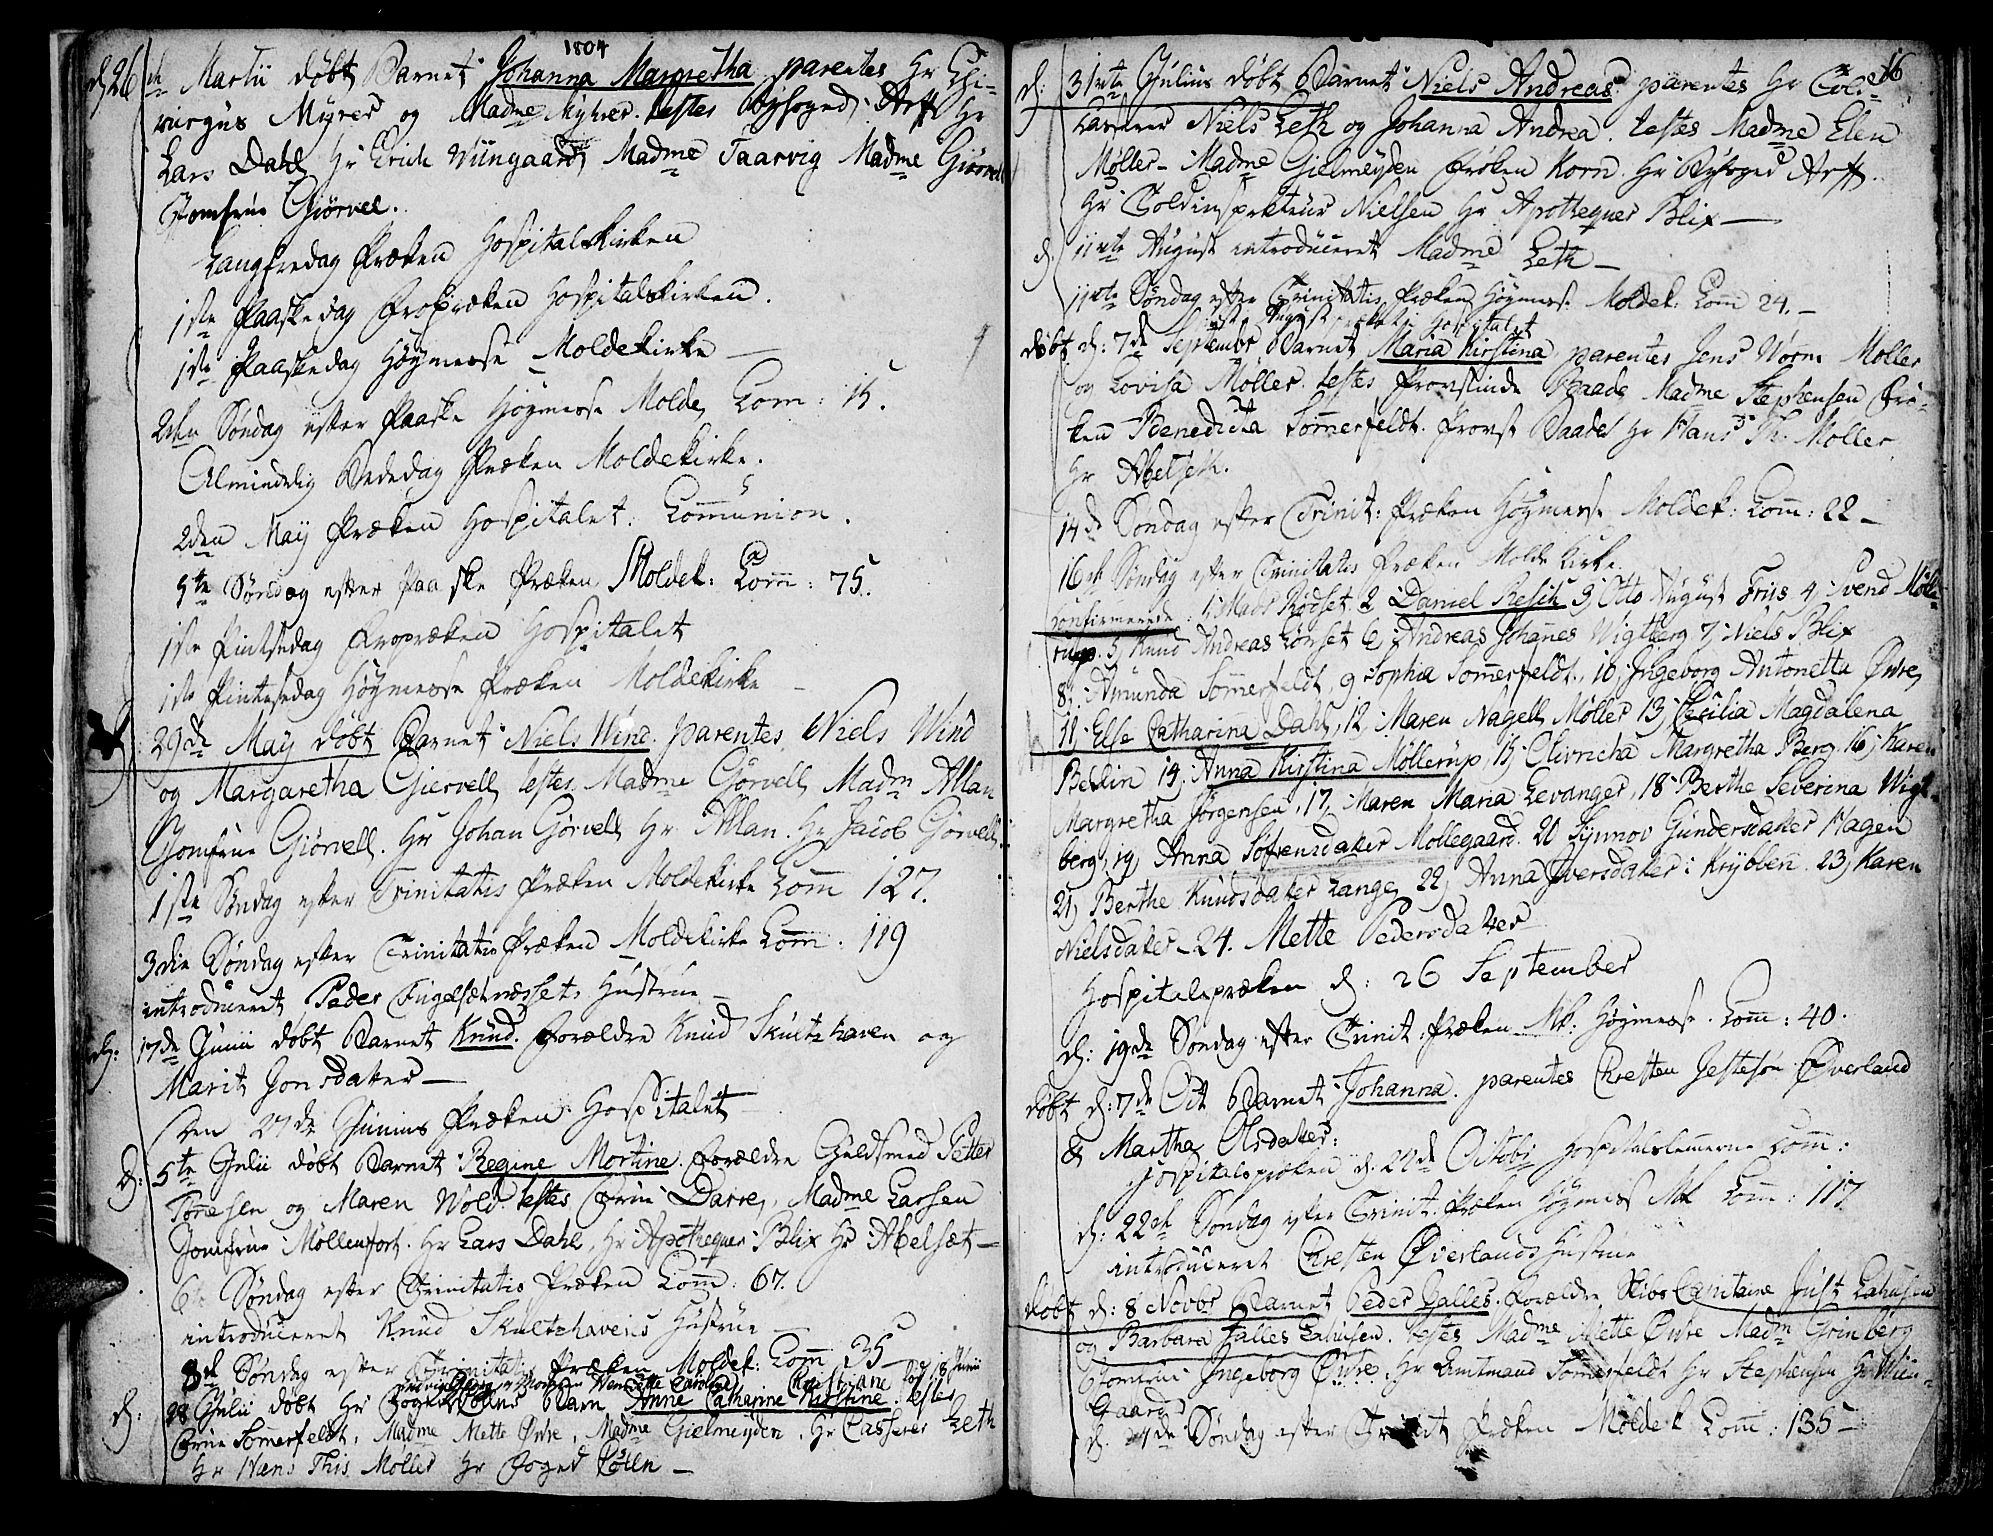 1804
d: 26de Martii døbt Barnet Johanna Margretha parentes Hr Chi-
rurgus Myrer og Madme Myhrer. testes Byfoged Arff Hr
Lars Dahl Hr Erich Wiingaard, Madme Taarvig Madme Giörvel
Jomfrue Giörvel.
Langfredag Præken Hospitalskirken
1ste Paaskedag Froepræken Hospitalskirken.
1ste Paaskedag Höymesse Moldekirke
2den Søndag efter Paaske Höymesse Molde, Com: 15.
Almindelig Bededag Præken Moldekirke.
2den Maÿ Præken Hospitalet. Communion.
5te Søndag efter Paaske Præken Moldek: Com: 75.
1ste Pintsedag Froepræken Hospitalet
1ste Pintsedag Höymesse Præken Moldekirke
29de Maÿ døbt Barnet Niels Wind. parentes Niels Wind
og Margaretha Giervell, testes Madme Görvell, Madm Allan
Jomfrue Giörvell. Hr Johan Görvell Hr Allan. Hr Jacob Görvell.
1ste Søndag efter Trinitatis Præken Moldekirke Com 127.
3die Søndag efter Trinitatis Præken Moldekirke Com: 119
introduceret Peder Fugelsætnessets Hustrue
d: 17de Junii døbt Barnet Knud. Forældre Knud Skultzhaven og
Marit Jonsdater
Den 27de Junius Præken Hospitalet
d: 5te Julii døbt Barnet Regine Mortine. Forældre Guldsmed Petter
Tönesen og Maren Wold. testes Frue Darre, Madme Larsen
Jomfrue Möllenfort. Hr Lars Dahl, Hr Apothequer Blix Hr Abelsæt
6te Søndag efter Trinitatis Præken Com: 67.
introduceret Knud Skultzhavens Hustrue
8de Søndag efter Trinitatis Præken Moldek: Com 35
d: 28 Julii døbt Hr Foged Barn Anne Catharine Kirstine. testes
Frue Sommerfeldt, Madme Mette Øvre, Madme Gielmeyden, Hr Casserer Leth
Hr Hans This Møller Hr Foged
16
d: 31te Julius døbt Barnet Niels Andreas. parentes Hr Told-
Casserer Niels Leth og Johanna Andrea. testes Madme Elen
Møller - Madme Gielmeyden Frøken Korn. Hr Byfoged Arff.
Hr Toldinspekteur Nielsen Hr Apothequer Blix
d. 11te August introduceret Madme Leth
11te Søndag efter Trinitatis Præken Höymesse Moldek: Com 24.
August Præken Hospitalet
døbt d: 7de Septembr Barnet Maria Kirstina parentes Jens Worm Møller
og Lovisa Møller. testes Provstinde Baade Madme Stephensen Frø-
ken Benedicta Sommerfeldt. Provst Baade Hr Hans Th: Møller
Hr Abelseth.
14de Søndag efter Trinit: Præken Höymesse Moldek: Com: 22
16de Søndag efter Trinitatis Præken Molde Kirke.
Confirmerede 1. Mads Rødset. 2 Daniel Resch 3, Otto August Friis 4, Svend Mölle-
rup. 5, Knud Andreas Lönset 6, Andreas Johannes Wigtberg 7, Niels Blix
8, Amunda Sommerfeldt, 9 Sophia Sommerfeldt, 10, Ingeborg Antonetta Øvre,
11, Else Catharina Dahl, 12, Maren Nagell Møller 13, Cecilia Magdalena
Beklin 14, Anna Kirstina Møllerup 15, Olivricha Margretha Berg. 16, Karen
Margretha Jörgensen, 17, Maren Maria Levanger, 18 Berthe Severina Wigt-
berg, 19, Anna Sofrensdater Mollegaard. 20 Synnov Gundersdater Hagen
21, Berthe Knudsdater Lange, 22, Anna Iversdater i Krybben. 23, Karen
Nielsdater. 24. Mette Pedersdater
Hospitalspræken d: 26 September
d: 19de Søndag efter Trinit. Præken Mk: Höymesse. Com: 40.
døbt d: 7de Oct Barnet Johanna. parentes Chresten Jestesøn Øverland
& Martha Olsdater:
Hospitalspræken d. 24de Octobr Hospitalslemerne Com:
d: 22de Søndag efter Trinit. Præken Höymess Mk Com: 117
introduceret Chresten Øverlands Hustrue
døbt d: 8 Novbr Barnet Peder Galles. Forældre Skibs Capitaine Just Lahusen
og Barbara Galles Lahusen. testes Madme Mette Øvre Madm Grinberg
Jomfrue Ingeborg Øvre, Hr Amtmand Sommerfeldt Hr Stephensen Hr Wiin-
Gaard
d. 24de Søndag efter Trinit Præken Moldek Com: 135